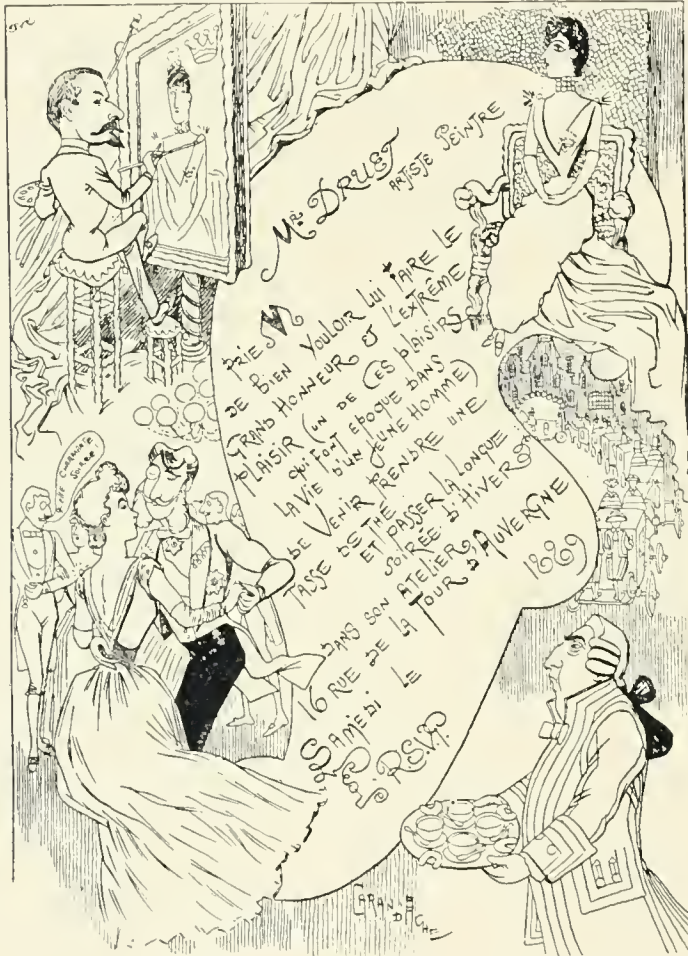 Mr. DRUET
ARTISTE PEINTRE
PRIE M
DE BIEN VOULOIR LUI FAIRE LE
GRAND HONNEUR ET L'EXTRÊME
PLAISIR (UN DE CES PLAISIRS
QUI FONT EPOQUE DANS
LA VIE D'UN JEUNE HOMME)
DE VENIR PRENDRE UNE
TASSE DE THÉ
ET PASSER LA LONGUE
SOIRÉE D'HIVER
DANS SON ATELIER
16 RUE DE LA TOUR D'AUVERGNE
SAMEDI LE
1889
R.S.V.P.
SOIRÉE
CARAN D'ACHE